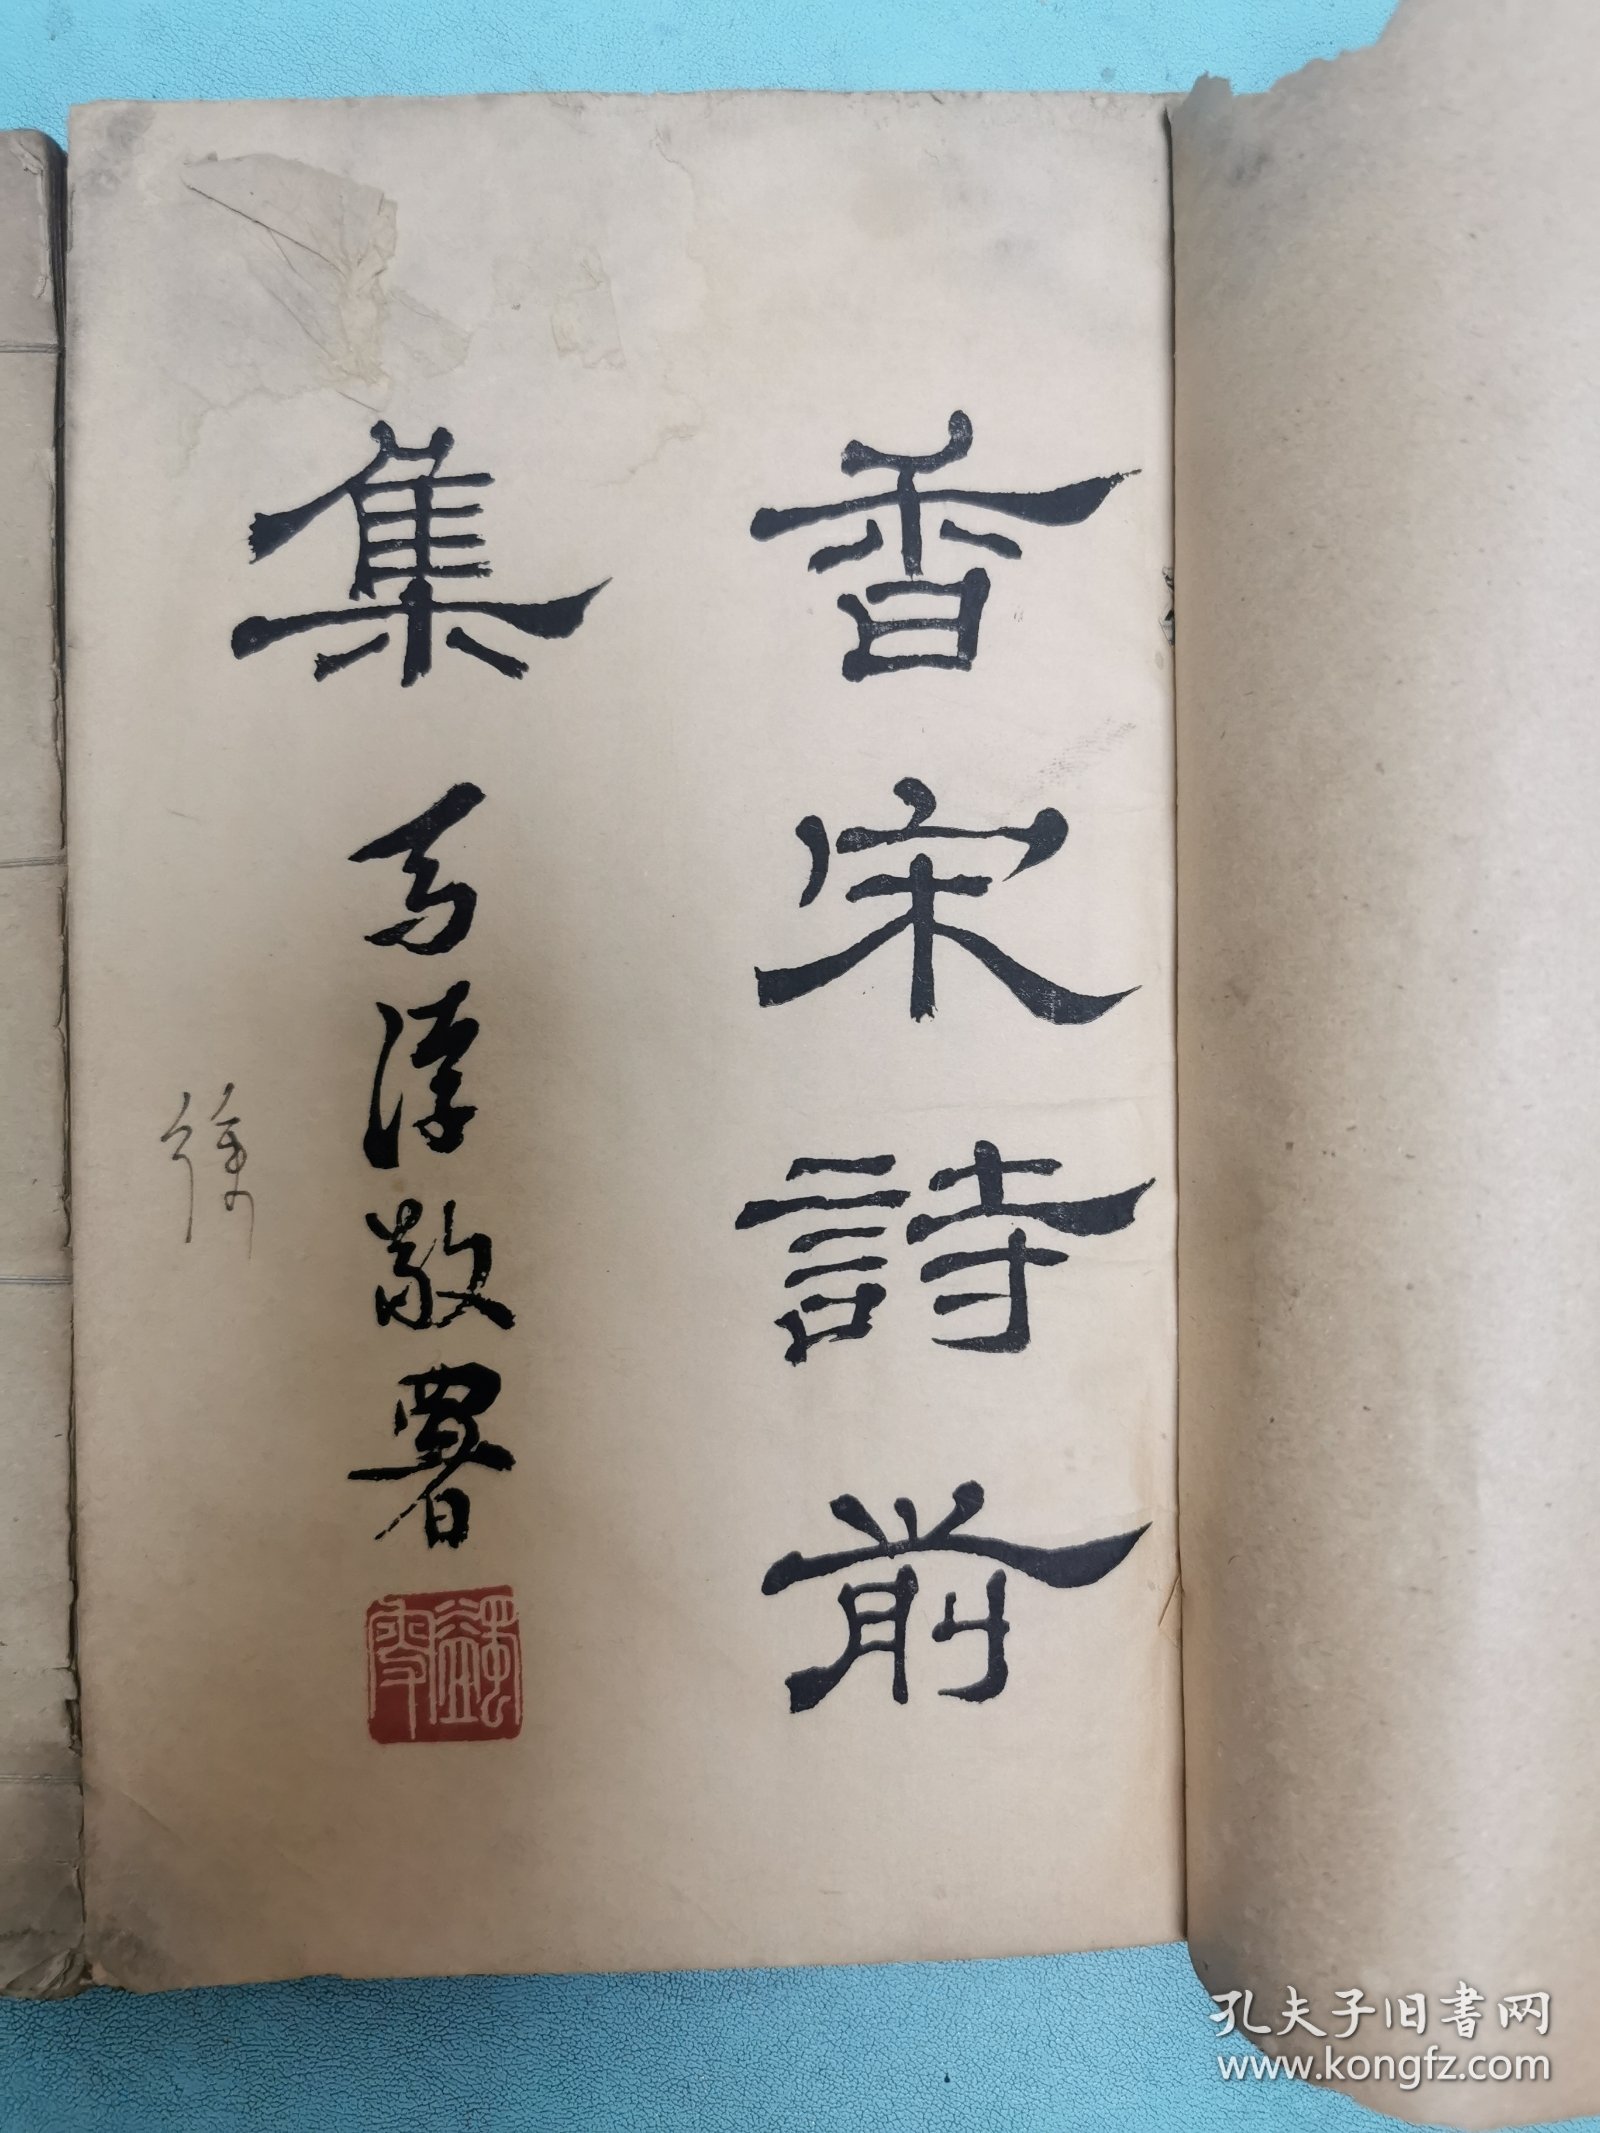 香宋詩前
集
馬浮敬署
蠲叟
孔夫子旧书网
www.kongfz.com